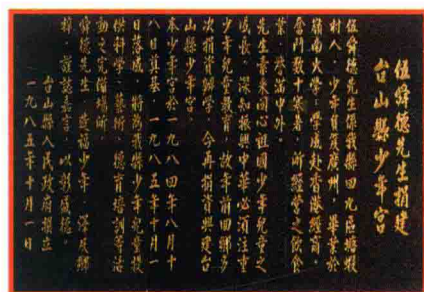 伍舜德先生捐建
台山縣少年宮
伍舜德先生係我縣四九區塘蝦
村人,少年負笈廣州,畢業於
嶺南大學,學成赴香港經商,
奮鬥數十寒暑,所經營之飲食
業,譽滿中外。
先生素來關心祖國少年兒童之
成長,深知振興中華必須注重
少年兒童教育,故年前回鄉多
次捐資辦學,今再捐資興建台
山縣少年宮。
本少年宮於一九八四年八月十
八日奠基,一九八五年十月一
日落成,將為我縣少年兒童提
供科學、藝術、體育培訓等活
動之完備場所。
舜德先生,造福少年,深孚縣
譽,謹誌嘉言,以彰盛德。
台山縣人民政府損立
一九八五年十月一日